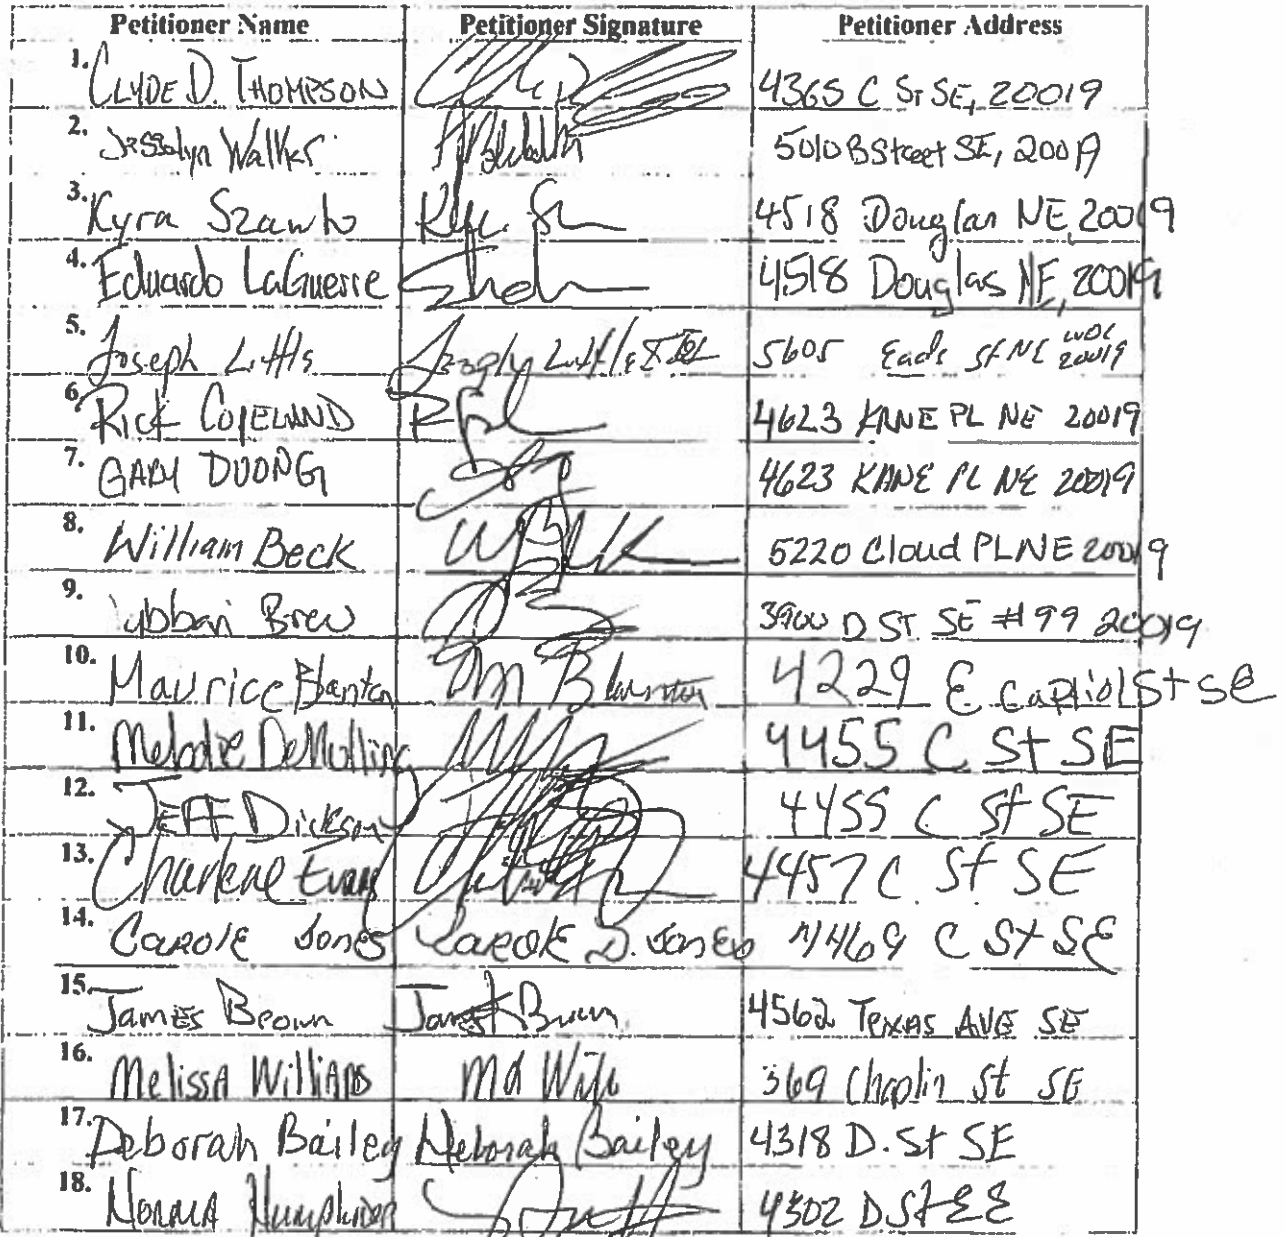 Petitioner Name Petitioner Signature Petitioner Address
1. CLYDE D. THOMPSON 4365 C ST SE, 20019
2. Josslyn Walker 5010 B Street SE, 20019
3. Kyra Szanto 4518 Douglas NE, 20019
4. Eduardo LaGuerre 4518 Douglas NE, 20019
5. Joseph Little 5605 Eads St NE WDC 20019
6. Rick COPELAND 4623 KANE PL NE 20019
7. GARY DUONG 4623 KANE PL NE 20019
8. William Beck 5220 Cloud PL NE 20019
9. Brew 3900 D ST. SE #99 20019
10. Maurice Blanton M Blanton 4229 E Capitol St SE
11. Melodie 4455 C St SE
12. JEFF Dickson 4455 C St SE
13. Charlene Evans 4457 C St SE
14. CAROLE Jones CAROLE D. Jones 4469 C St SE
15. James Brown James Brown 4562 TEXAS AVE SE
16. Melissa Williams 369 Chaplin St SE
17. Deborah Bailey Deborah Bailey 4318 D. St SE
18. 4302 D St SE